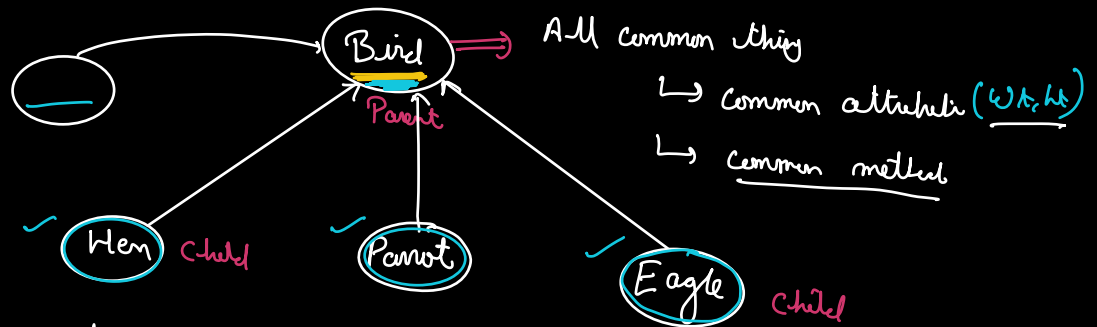 Bird
All common thing
Parent
common attribute (wt, ht)
common method
Hen
Child
Parrot
Eagle
Child